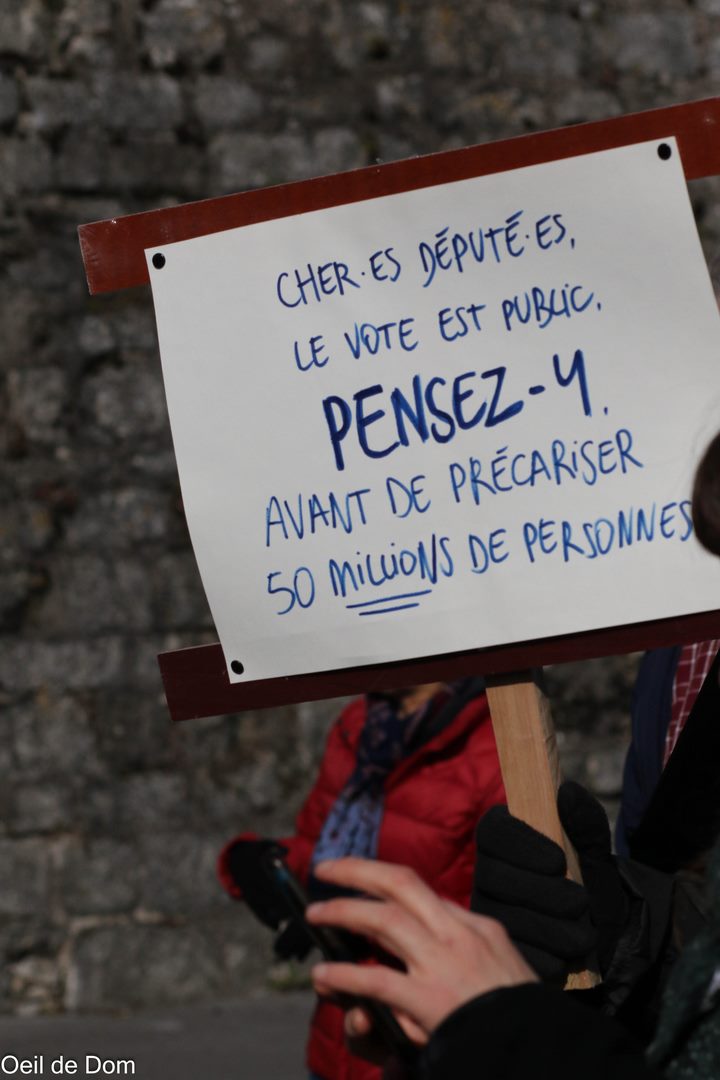 CHER·ES DÉPUTÉ·ES,
LE VOTE EST PUBLIC.
PENSEZ-Y.
AVANT DE PRÉCARISER
50 MILLIONS DE PERSONNES
Oeil de Dom